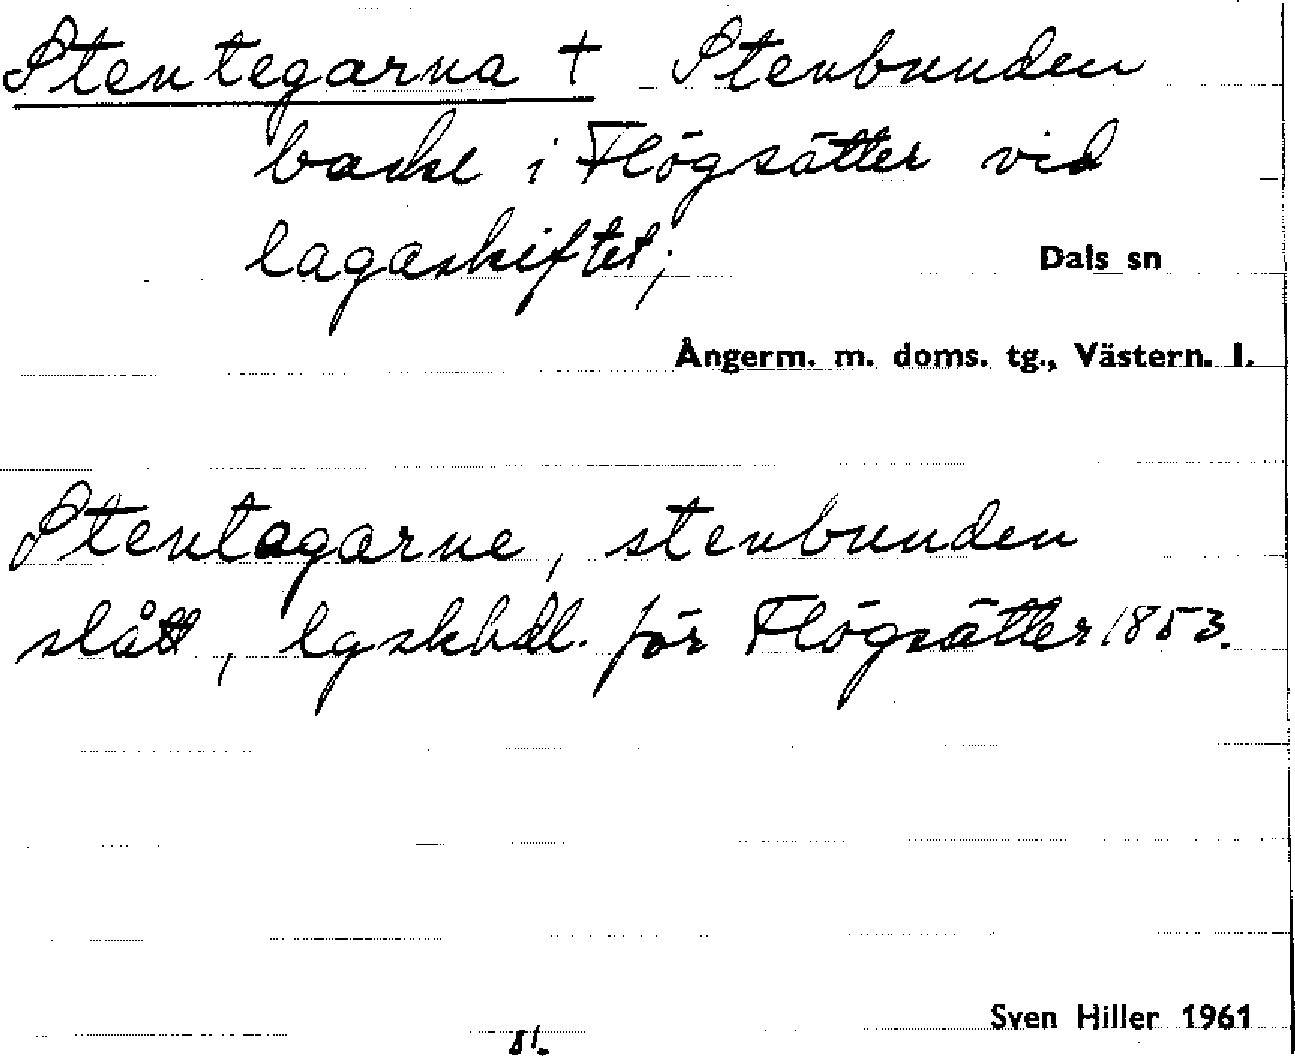 Stentegarna † Stenbunden
backe i Flögsätter vid
lagaskiftet;
Dals sn
Ångerm. m. doms. tg., Västern. l.
Stentagarne, stenbunden
slått, lgskhdl. för Flögsätter 1853.
Sven Hiller 1961